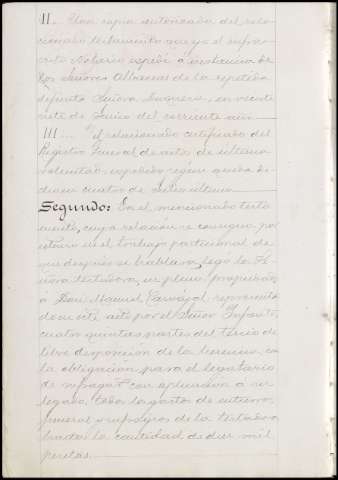 II.. Una copia autorizada del rela-
cionado testamento que yo el infras-
crito Notario expedí a instancia de
los Señores Albaceas de la repetida
difunta Señora en veinte
siete de Junio del corriente año
III... El relacionado certificado del
Registro General de actos de última
voluntad, expedido según queda di-
cho en cuatro de Julio último
Segundo: En el mencionado testa-
mento, cuya relación se consigna por
en el trabajo particional de
que después se hablará, legó la Se-
ñora testadora, en plena propiedad
a Don Miguel Carvajal, representado
en este acto por el Señor Infante,
cuatro quintas partes del tercio de
libre disposición de la herencia, con
la obligación para el legatario
de sufragar con aplicación a su
legado, todos los gastos de entierro,
funeral y sufragios de la testadora
hasta la cantidad de diez mil
pesetas.